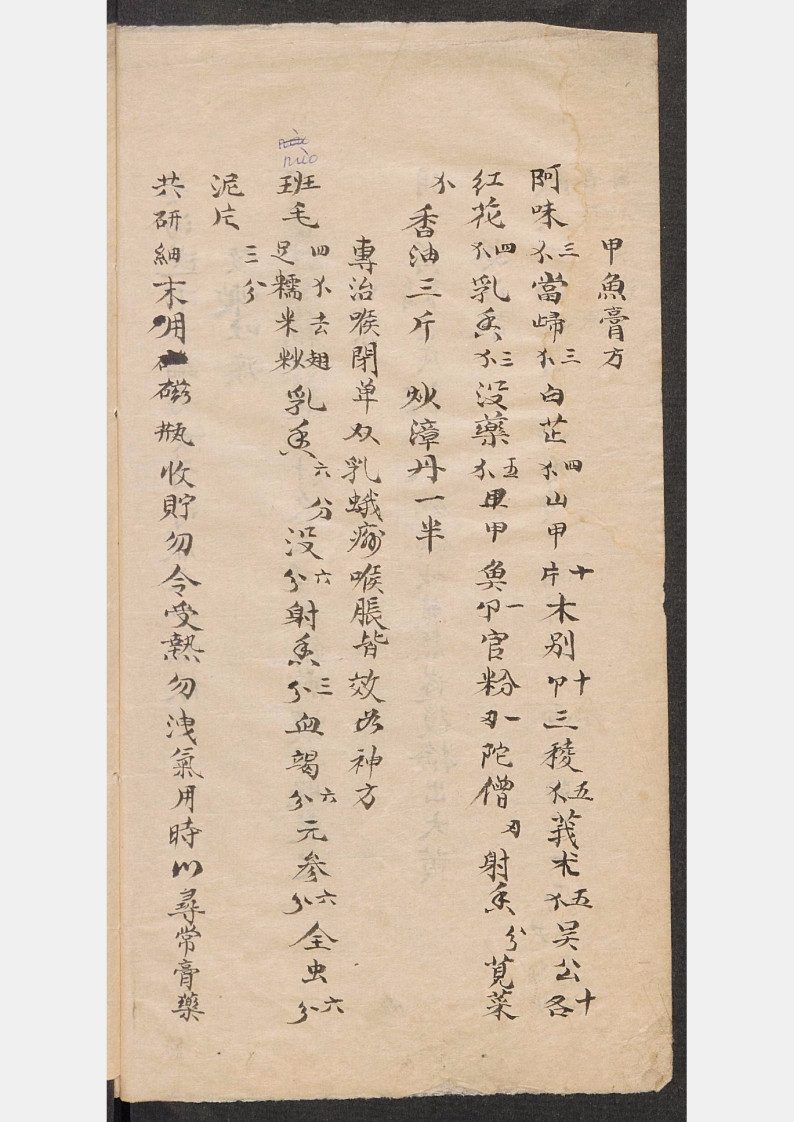 甲魚膏方
阿味三不當歸三不白芷四不山甲十片木別十卬三稜五不莪术五不吴公十各
紅花四不乳香三不没藥五不甲魚一卬官粉一刄陀僧刄射香分莧菜
不香油三斤炒漳丹一半
專治喉閉单双乳蛾痧喉脹皆效此神方
班毛四不去翅足糯米炒乳香六分没六分射香三分血竭六分元参六分全虫六分
泥片三分
共研細末用磁瓶收貯勿令受熱勿洩氣用時以尋常膏藥
mùo